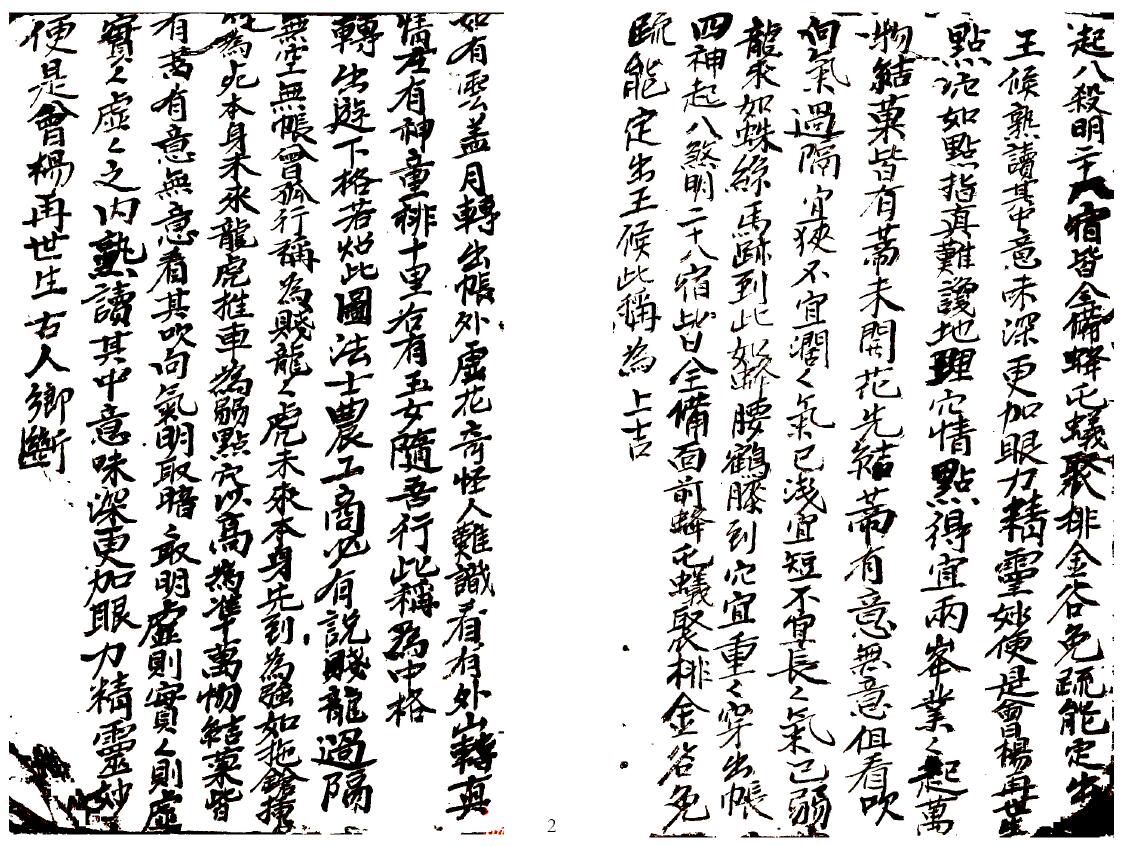 起八殺明二十八宿皆全備蜂屯蟻聚排金谷免疏能定出
王候熟讀其中意味深更加眼力精靈妙便是曾楊再世生
點穴如點指真難讒地理穴情點得宜兩峯業々起萬
物結菓皆有蒂未開花先結蒂有意無意但看吹
向氣過隔宜狹不宜濶々氣已淺宜短不宜長々氣已弱
龍來如蛛絲馬跡到此如蜂腰鶴膝到穴宜重々穿出帳
四神起八煞明二十八宿皆全備面前蜂屯蟻聚排金谷免
疏能定出王候此稱為上吉
如有雲盖月轉出帳外虛花奇怪人難識看有外山轉真
情左有神童排十里右有玉女隨吾行此稱為中格
轉出遊下格若如此圖法士農工商必有說賤龍過隔
無空無帳曾孤行稱為賤龍々虎未來本身先到為強如拖鎗捧
為死本身未來龍虎推車為弱點穴以高為準萬物結菓皆
有蒿有意無意看其吹向氣明取暗々取明虛則實々則虛
實々虛々之内熟讀其中意味深更加眼力精靈妙
便是曾楊再世生古人鄉斷
2